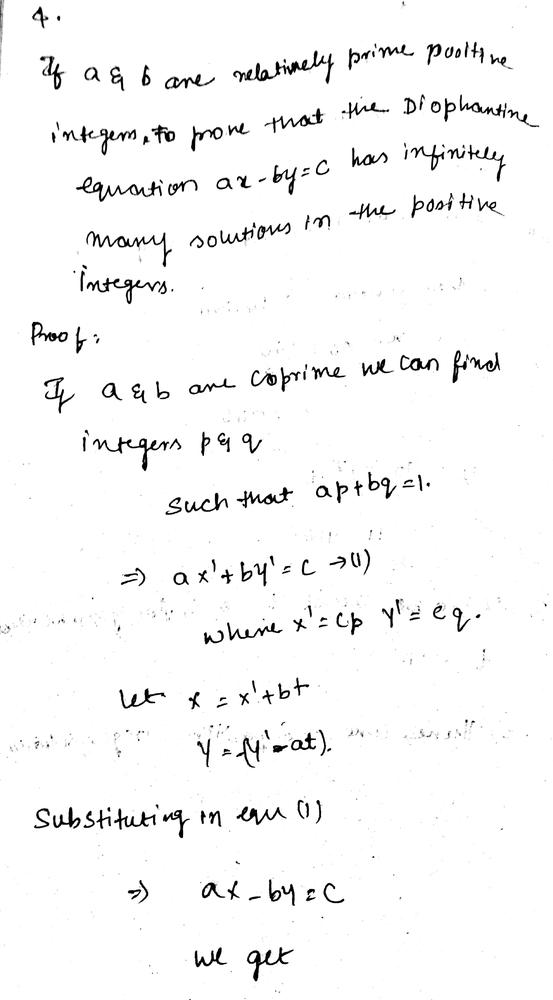 4.
If a & b are relatively prime positive
integers, to prove that the Diophantine
equation ax - by = c has infinitely
many solutions in the positive
integers.
Proof:
If a & b are coprime we can find
integers p & q
such that ap + bq = 1.
⇒ ax' + by' = c → (1)
where x' = cp y' = cq.
Let x = x' + bt
y = -(y' - at).
Substituting in equ (1)
⇒ ax - by = c
we get